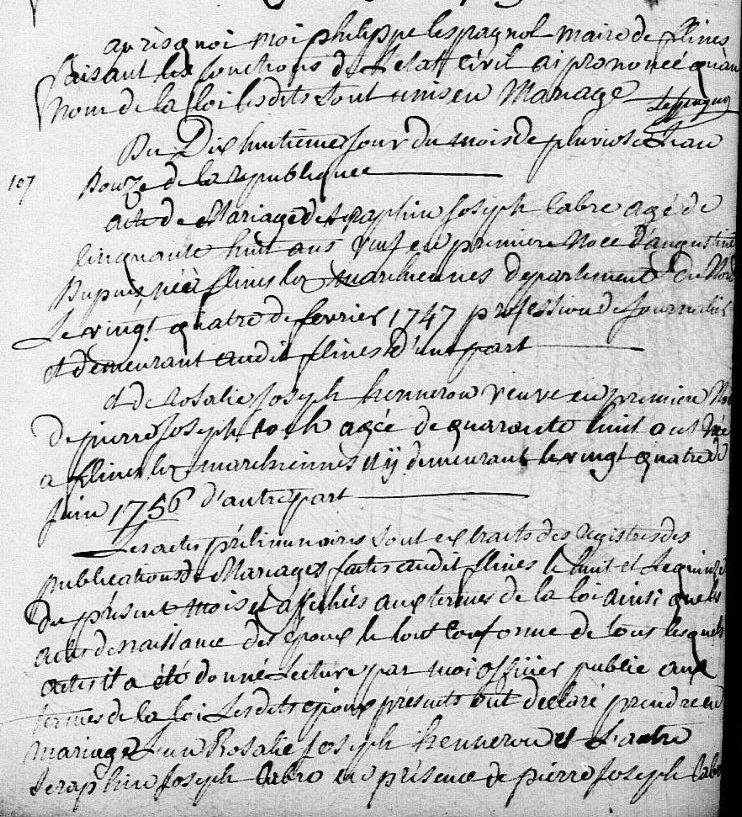 apris quoi moi philippe lespagnol maire de flines
faisant les fonctions de letat civil ai prononcé quau
nom de la loi lesdits sont unis en Mariage Lespagnol
Du Dix huitieme jour du mois de pluviose Lan
107
Douze de la republique
acte de Mariage de Seraphin Joseph Cabre agé de
Cinquante huit ans veuf en premiere Noce d'augustine
Dupuis né à flines lez marchiennes departement du Nord
Le vingt quatre de fevrier 1747 profession de Journalier
et demeurant audit flines d'une part
et de Rosalie Joseph henneron veuve en premier
De pierre Joseph agée de quarante huit ans Née
a flines lez marchiennes et y demeurant le vingt quatre de
Juin 1756 d'autre part
Les actes préliminaires sont extraits des registres des
publications de Mariages faites audit flines le huit et Le quinze
du présent mois et affichés aux termes de la loi ainsi que les
actes de naissance des époux le tout conforme de tous lesquels
actes il a été donné Lecture par moi officier public aux
termes de la loi Lesdits époux présents ont declaré prendre en
mariage L'un Rosalie Joseph henneron et L'autre
Seraphin Joseph Cabre en présence de pierre Joseph